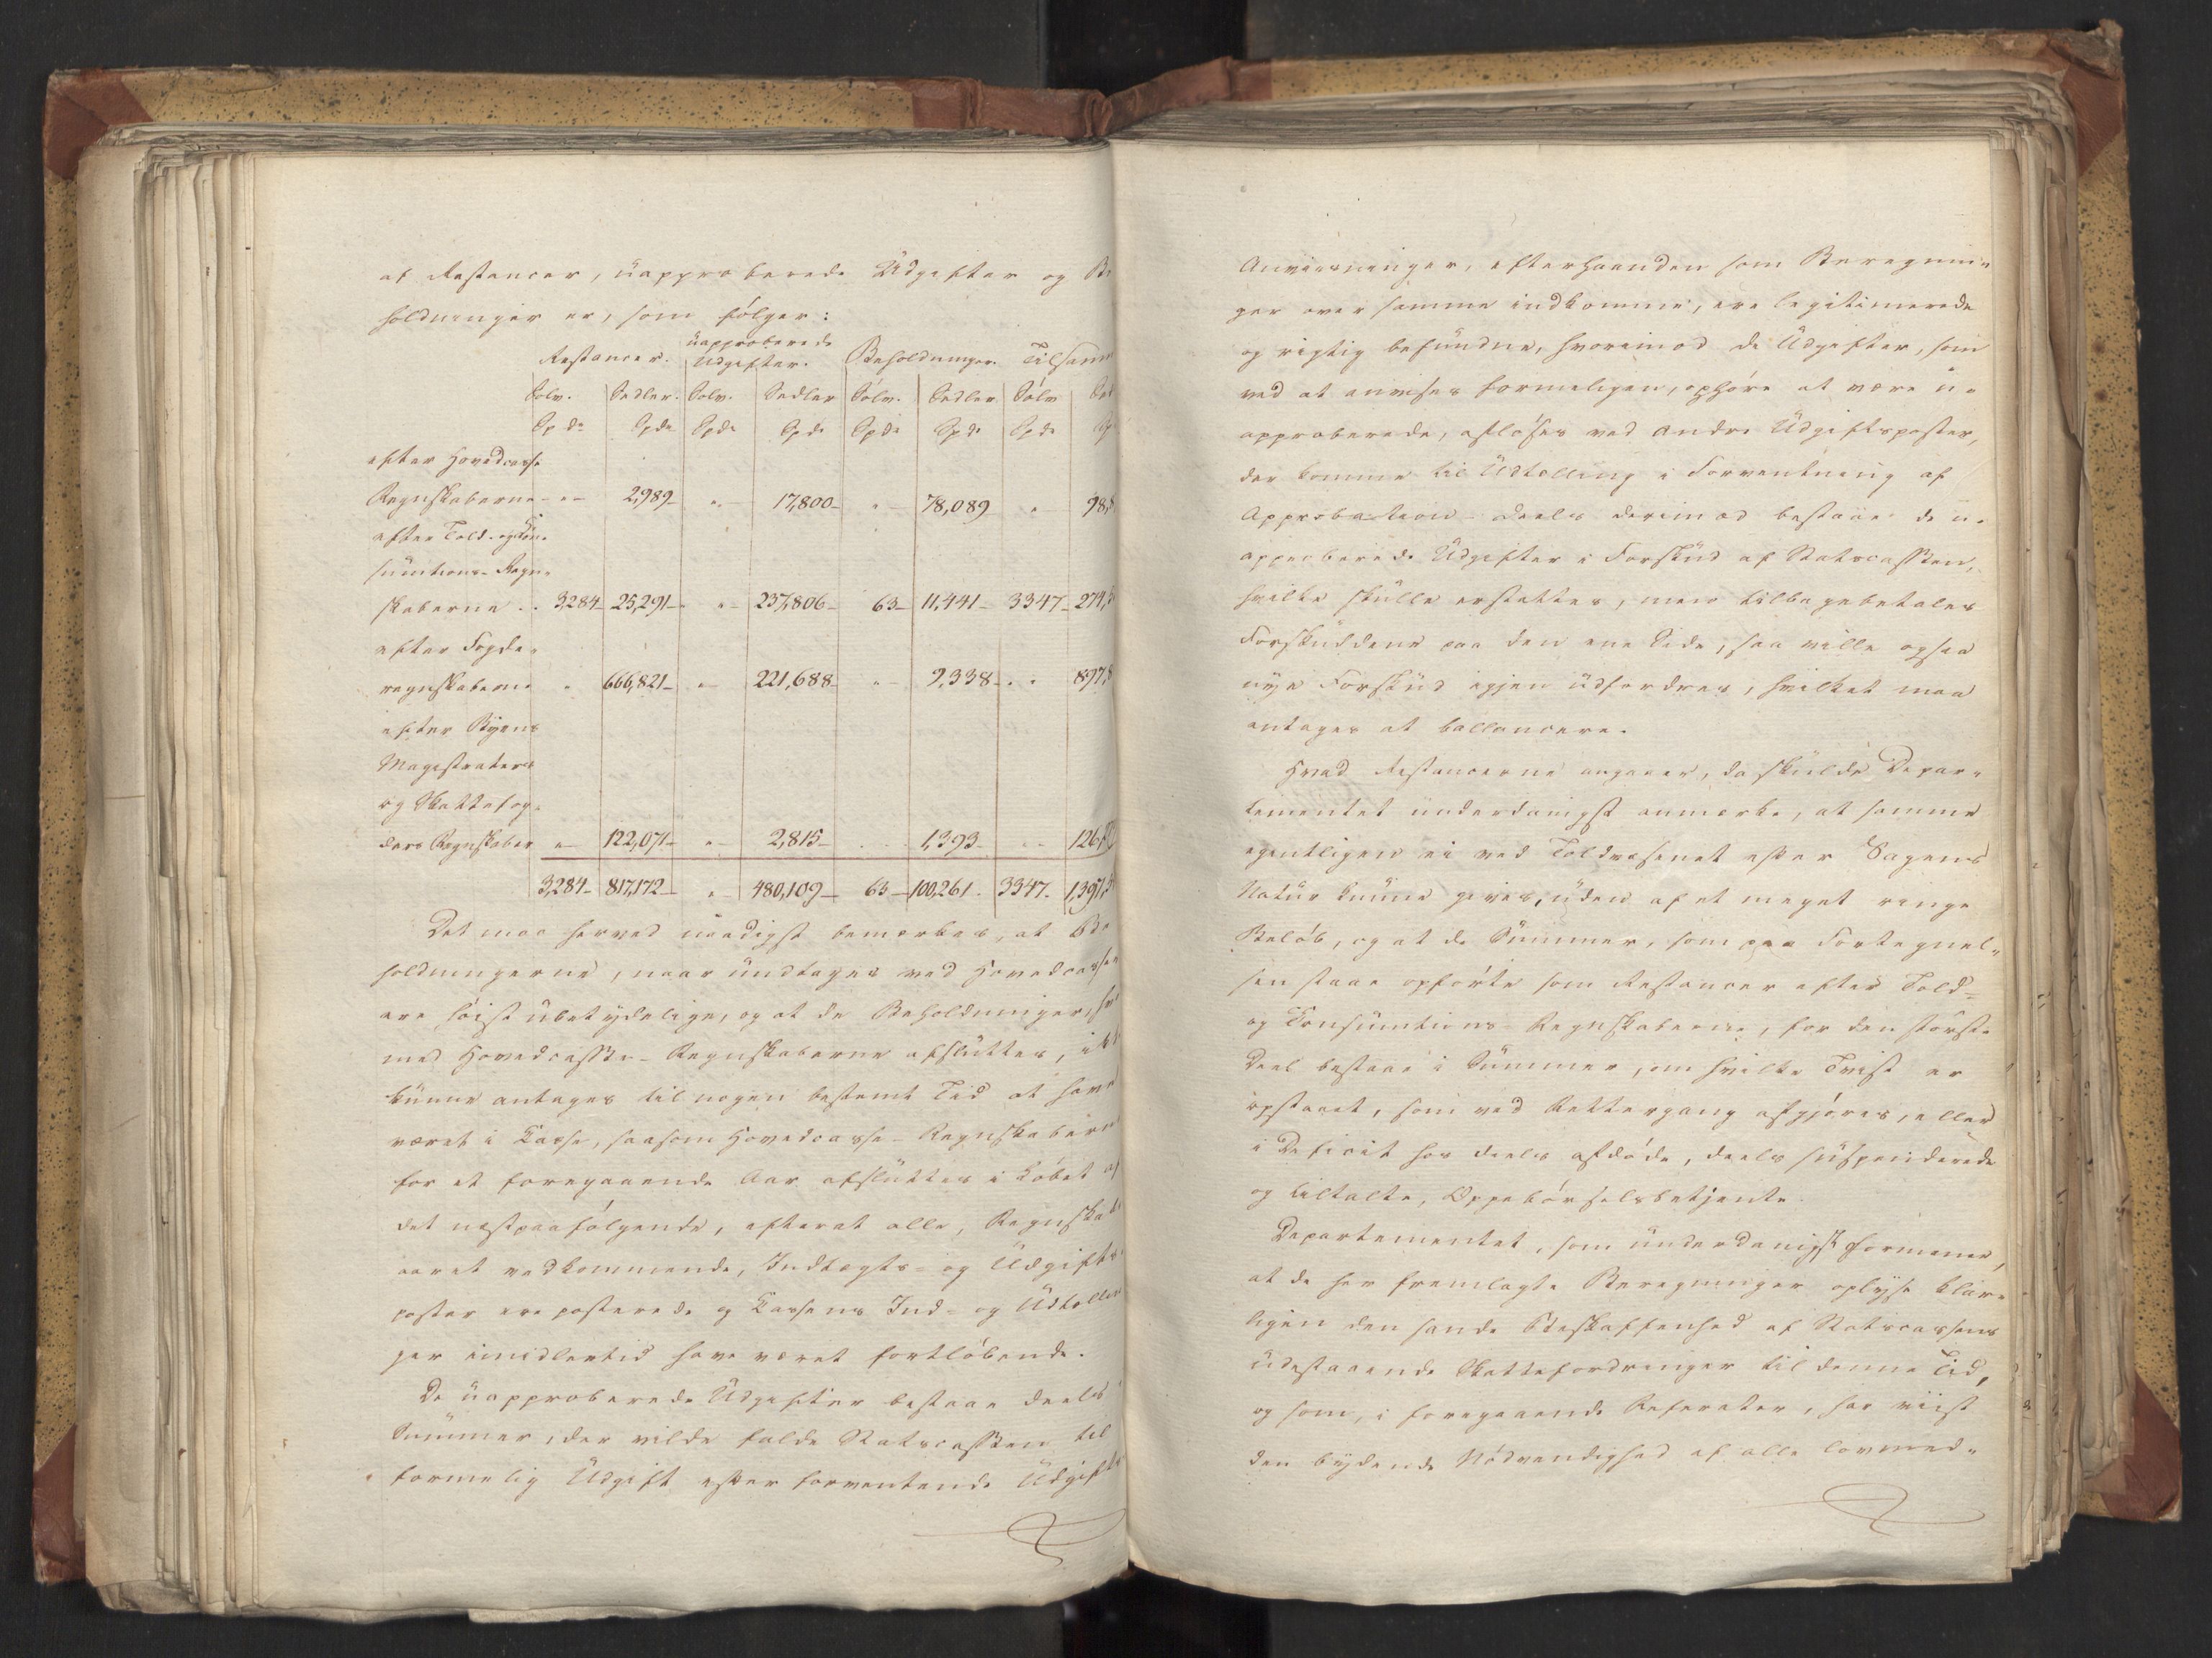 af Restancer, uapproberede Udgifter og Be
holdninger er, som følger:
Restancer. uapproberede Udgifter. Beholdninger. Tilsamm
Sølv. Sedler. Sølv. Sedler Sølv. Sedler Sølv Sed
Spd. Spd. Spd. Spd. Spd. Spd. Spd. Sp
efter Hovedcasse
Regnskaberne - " - 2,989 - " - 17,800 - " - 78,089 " 98,8
efter Told- og Con-
sumtions-Regn-
skaberne .. 3,284 - 25,291 - " - 237,806 - 63 - 11,441 - 3347 - 274,5
efter Fogde-
regnskaberne " 666,821 - " - 221,688 - " - 9,338 - . " 897,8
efter Byens
Magistraters
og Skattefog-
ders Regnskaber " - 122,071 - " - 2,815 - . . 1,393 - " - 126,2
3,284 - 817,172 - " - 480,109 - 63 - 100,261 - 3347 - 1,397,5
Det maa herved naadigst bemærkes, at Be
holdningerne, naar undtages ved Hovedcassen
ere høist ubetydelige, og at de Beholdninger, hvor
med Hovedcasse-Regnskaberne afsluttes, ikke
kunne antages til nogen bestemt Tid at have
været i Casse, saasom Hovedcasse-Regnskaberne
for et foregaaende Aar afsluttes i Løbet af
det næstpaafølgende, efterat alle, Regnskabs
aaret vedkommende, Indtægts- og Udgifts
poster ere posterede og Cassens Ind- og Udtællin
ger imidlertid have været fortløbende.
De uapproberede Udgifter bestaae deels i
Summer, der vilde falde Statscassen til
formelig Udgift efter forventende Udgifts
Anviisninger, efterhaanden som Beregnin
ger over samme indkomme, ere legitimerede
og rigtig befundne, hvorimod de Udgifter, som
ved at anvises formeligen, ophøre at være u-
approberede, afløses ved andre Udgiftsposter,
der komme til Udtælling i Forventning af
Approbation - deels derimod bestaae de u-
approberede Udgifter i Forskud af Statscassen,
hvilke skulle erstattes, men tilbagebetales
Forskuddene paa den ene Side, saa ville ogsaa
nye Forskud igjen udfordres, hvilket maa
antages at ballancere.
Hvad Restancerne angaaer, da skulde Depar-
tementet underdanigst anmærke, at samme
egentligen ei ved Toldvæsenet efter Sagens
Natur kunne gives, uden af et meget ringe
Beløb, og at de Summer, som paa Fortegnel-
sen staae opførte som Restancer efter Told-
og Consumtions-Regnskaberne, for den største
Deel bestaae i Summer, om hvilke Tvist er
opstaaet, som ved Rettergang afgjøres, eller
i Deficit hos deels afdøde, deels suspenderede
og tiltalte, Oppebørselsbetjente.
Departementet, som underdanigst formener,
at de her fremlagte Beregninger oplyse klar-
ligen den sande Beskaffenhed af Statscassens
udestaaende Skattefordringer til denne Tid,
og som, i foregaaende Referater, har viist
den bydende Nødvendighed af alle lovmed-